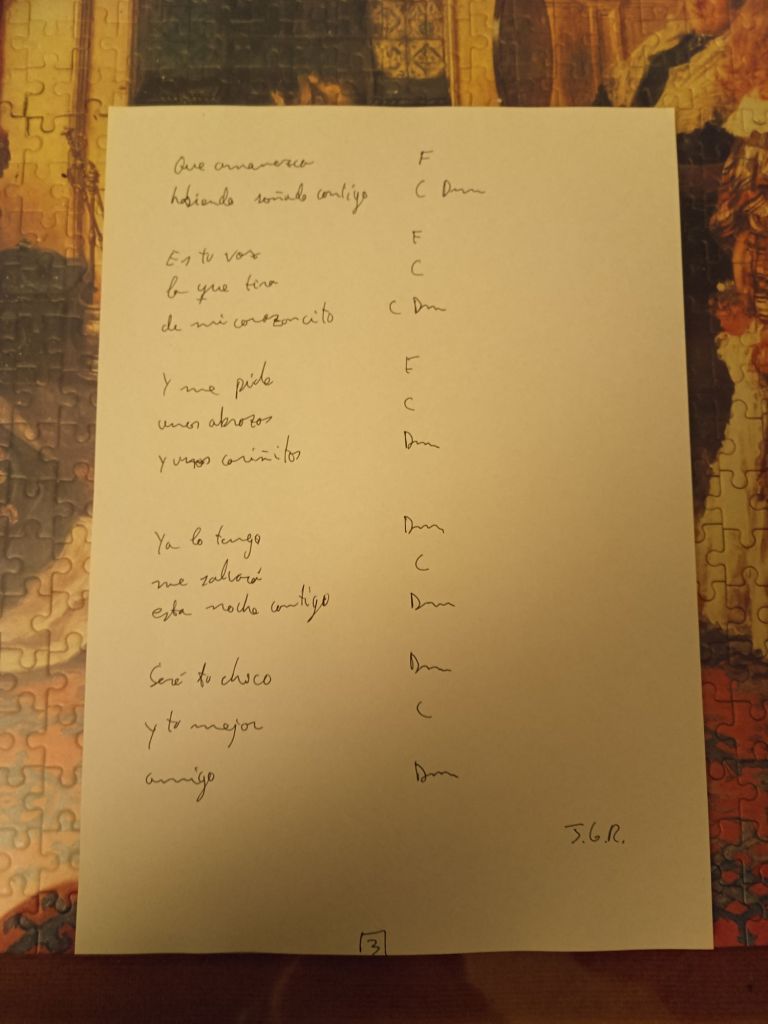 Que amanezca F
habiendo soñado contigo C Dm
Es tu voz F
la que tira C
de mi corazoncito C Dm
Y me pide F
unos abrazos C
y unos cariñitos Dm
Ya lo tengo Dm
me salvará C
esta noche contigo Dm
Seré tu chico Dm
y tu mejor C
amigo Dm
J.G.R.
3